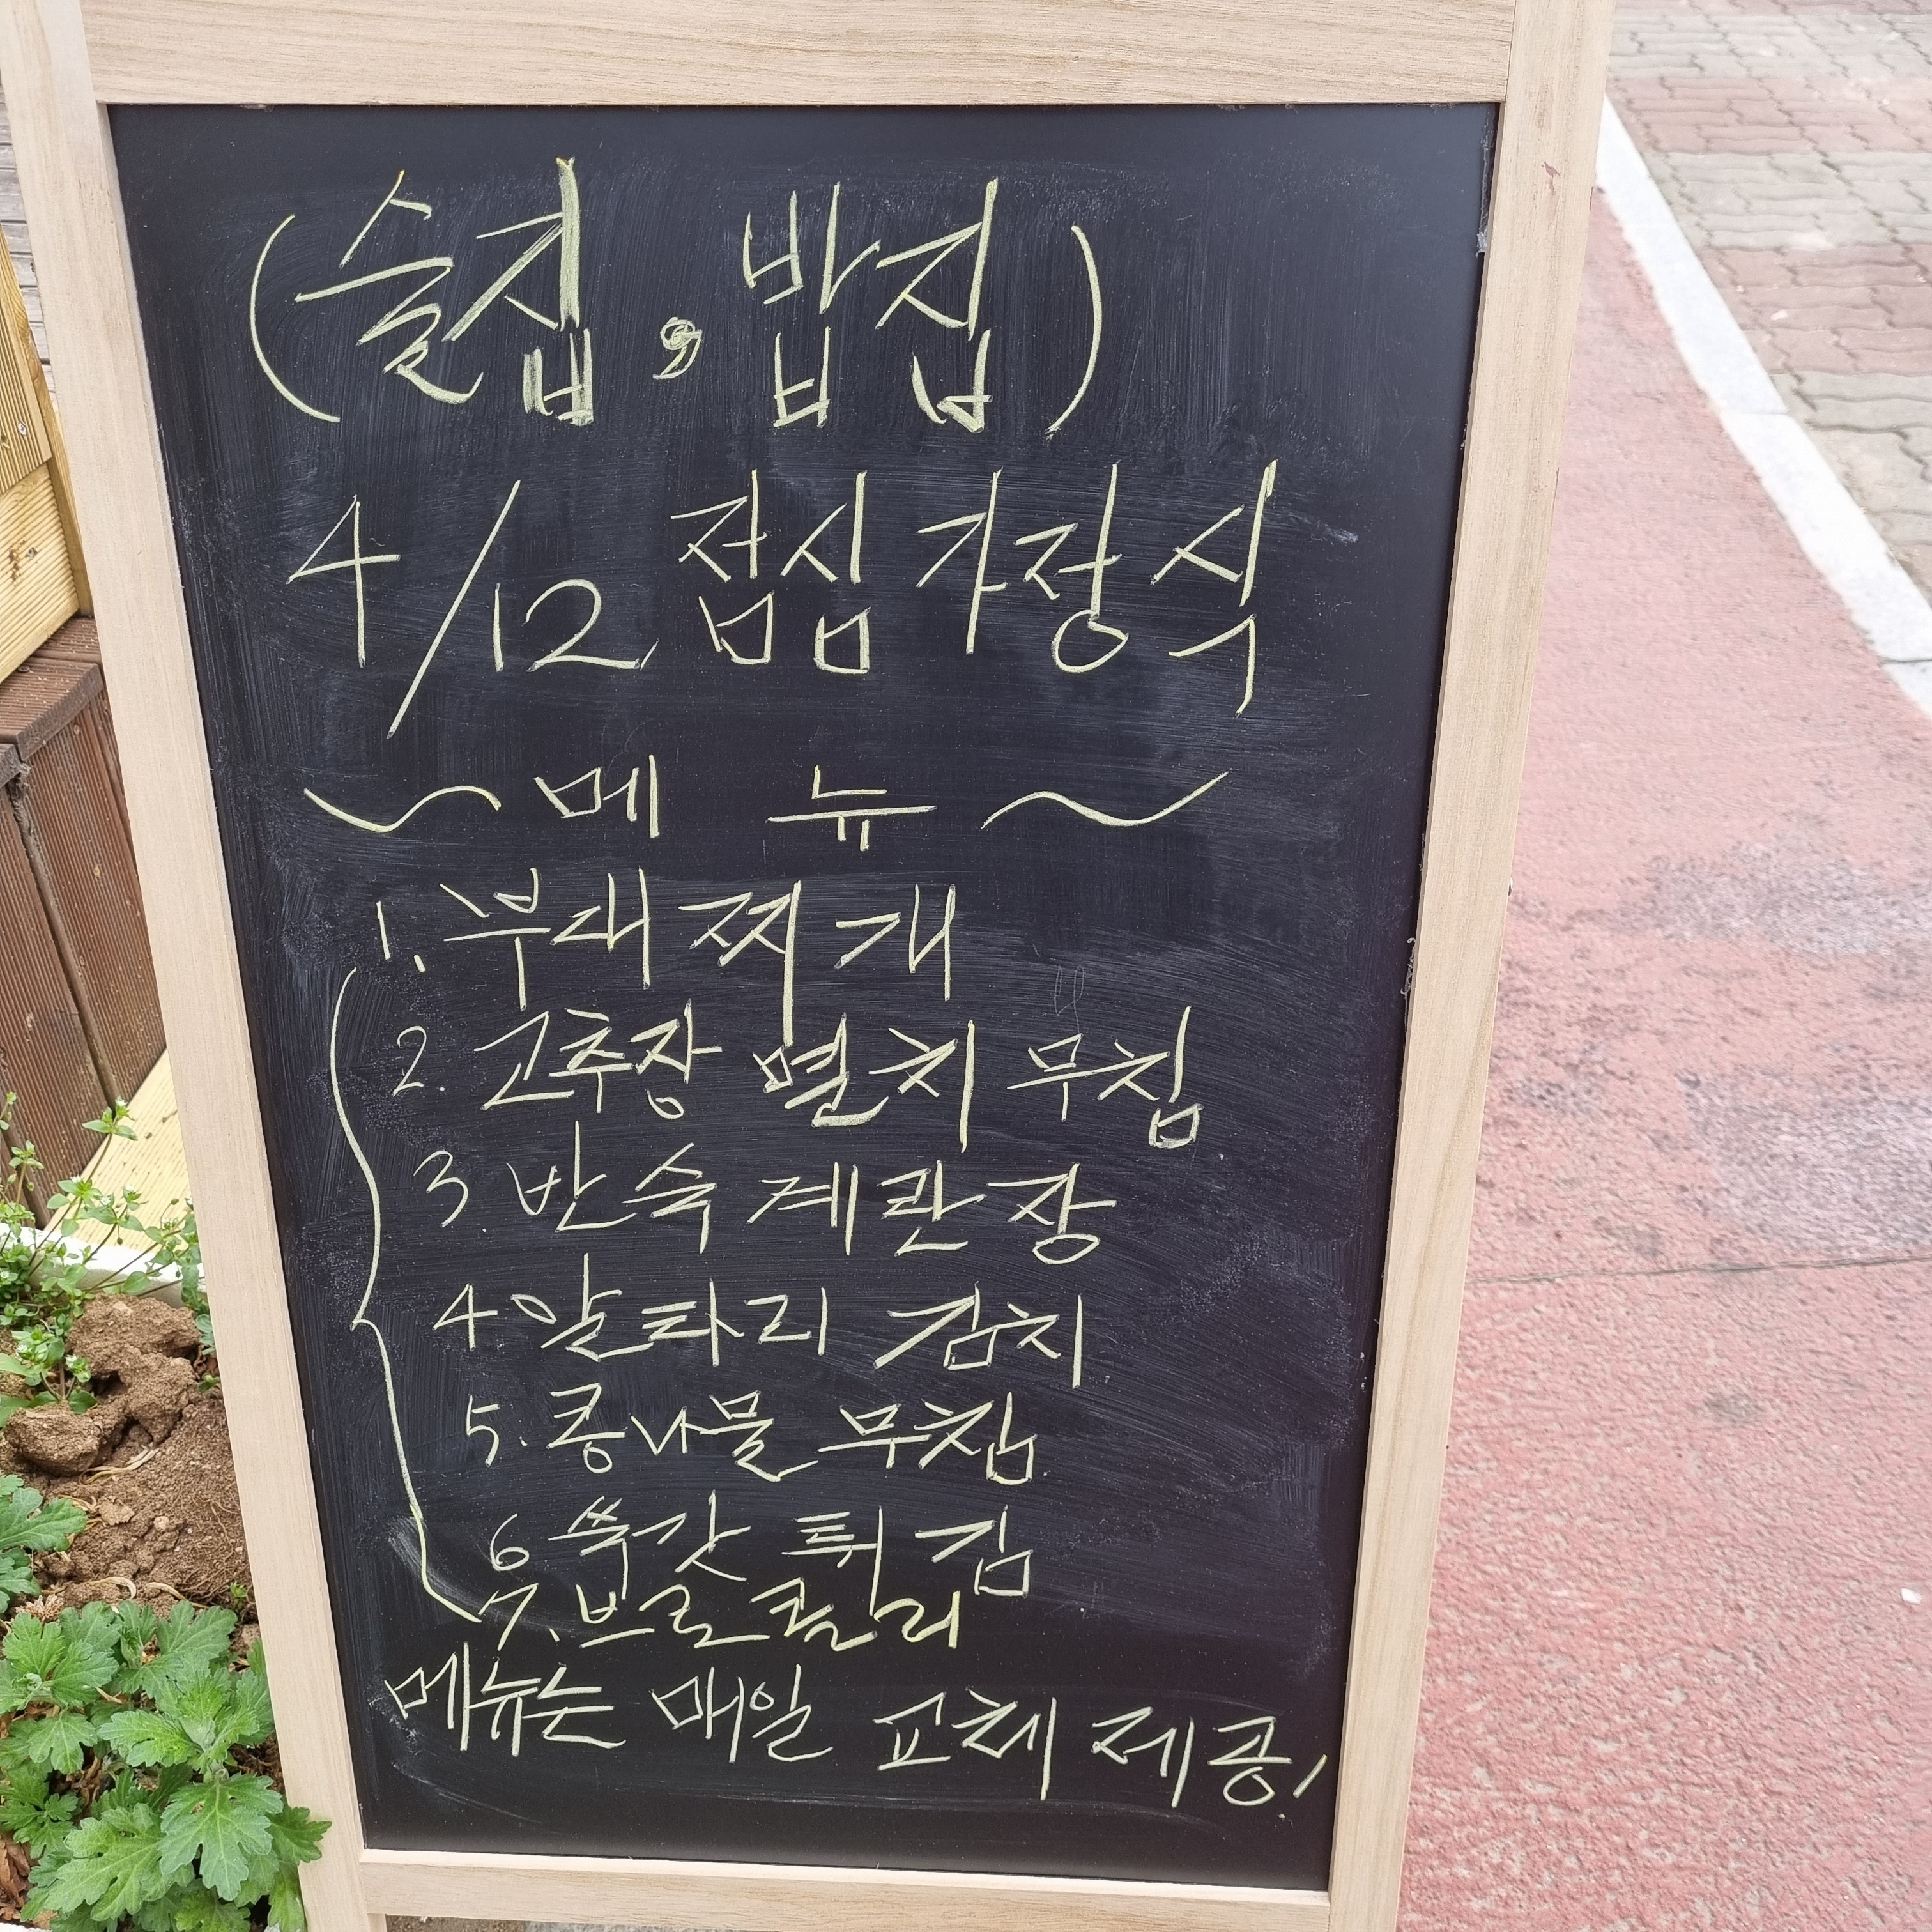 (술집, 밥집)
4/12 점심 가장식
~ 메 뉴 ~
1. 부대찌개
2. 고추장 멸치 무침
3 반숙 계란장
4 알타리 김치
5. 콩나물 무침
6. 쑥갓 튀김
7. 브로콜리
메뉴는 매일 교체 제공!